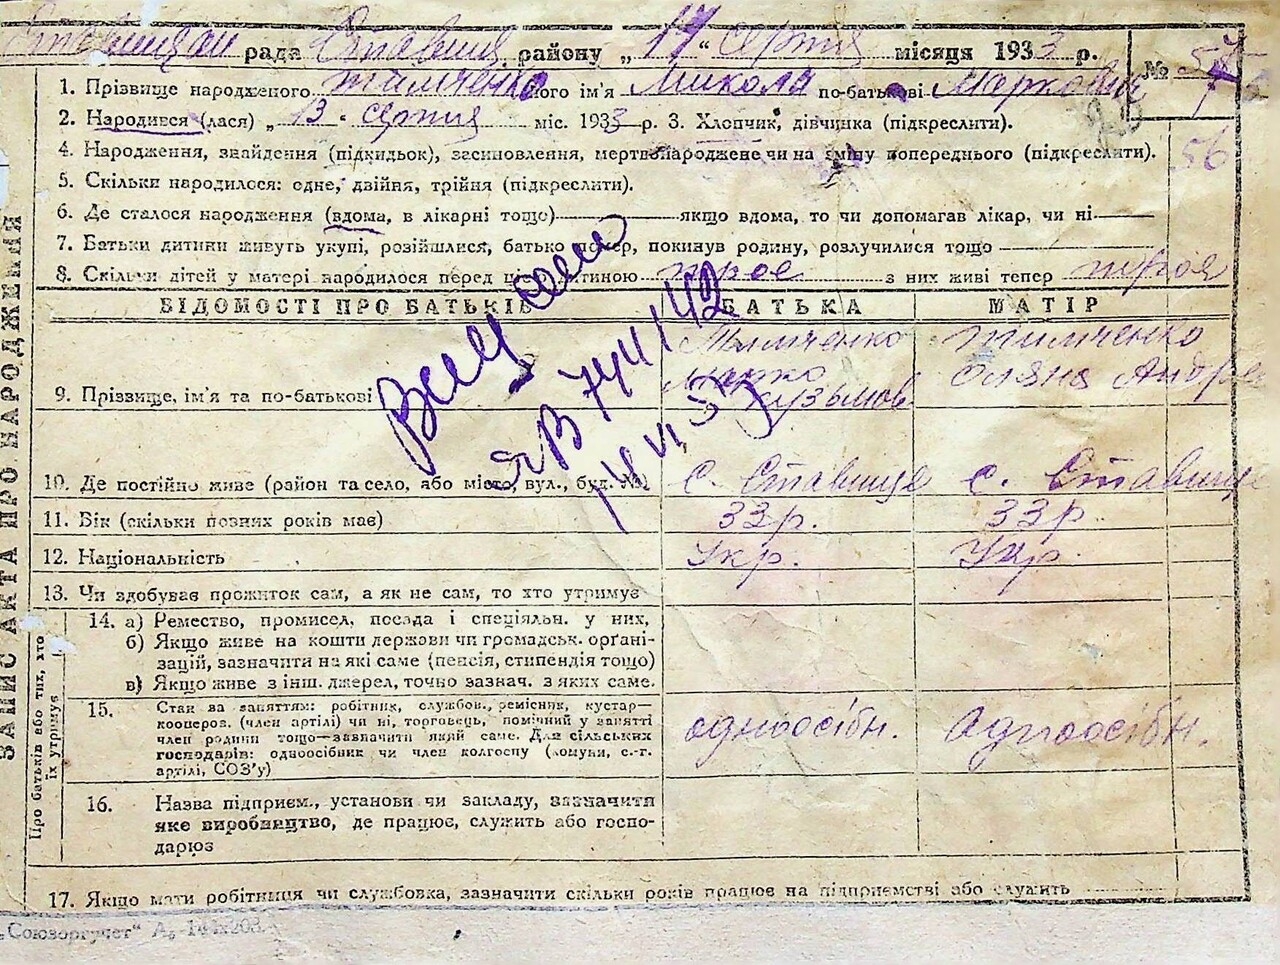 Ставищан рада Ставищ. району „17“ серпня місяця 1933 р.
№ 57
1. Прізвище народженого Тимченко його ім'я Микола по-батькові Маркович
2. Народився (лася) „13“ серпня міс. 1933 р. 3. Хлопчик, дівчинка (підкреслити).
4. Народження, знайдення (підкидьок), засиновлення, мертвонароджене чи на зміну попереднього (підкреслити).
56
5. Скільки народилося: одне, двійня, трійня (підкреслити).
6. Де сталося народження (вдома, в лікарні тощо) якщо вдома, то чи допомагав лікар, чи ні
7. Батьки дитини живуть укупі, розійшлися, батько помер, покинув родину, розлучилися тощо
8. Скільки дітей у матері народилося перед цією дитиною троє з них живі тепер троя
ВІДОМОСТІ ПРО БАТЬКІВ БАТЬКА МАТІР
9. Прізвище, ім'я та по-батькові
Тымченко Марко Кузьмов.
Тимченко Оляна Андре
10. Де постійно живе (район та село, або місто, вул., буд. №) с. Ставище с. Ставище
11. Вік (скільки повних років має) 33 р. 33 р
12. Національність Укр. Укр.
13. Чи здобуває прожиток сам, а як не сам, то хто утримує
14. а) Ремество, промисел, посада і спеціяльн. у них,
б) Якщо живе на кошти держави чи громадськ. орґані-
зацій, зазначити на які саме (пенсія, стипендія тощо)
в) Якщо живе з інш. джерел, точно зазнач. з яких саме.
15. Стан за заняттям: робітник, службов., ремісник, кустар—
кооперов. (член артілі) чи ні, торговець, помічний у занятті
член родини тощо—зазначити який саме. Для сільських
господарів: одноосібник чи член колгоспу (комуни, с.-г.
артілі, СОЗ'у)
одноосібн. одноосібн.
16. Назва підприєм., установи чи закладу, зазначити
яке виробництво, де працює, служить або госпо-
дарює
17. Якщо мати робітниця чи службовка, зазначити скільки років працює на підприємстві або служить
ЗАПИС АКТА ПРО НАРОДЖЕННЯ
Про батьків або тих, хто
їх утримує
ЯВ 744142
14 VI 57
„Союзоргучет“ А₅ 144х203.